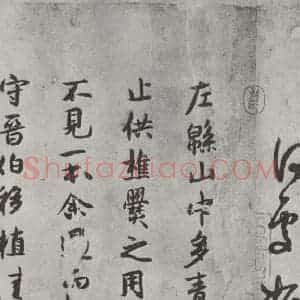 左緜山中多青
止供樵爨之用
不見一本余過而
守晉伯移植
Shufaziliao.com